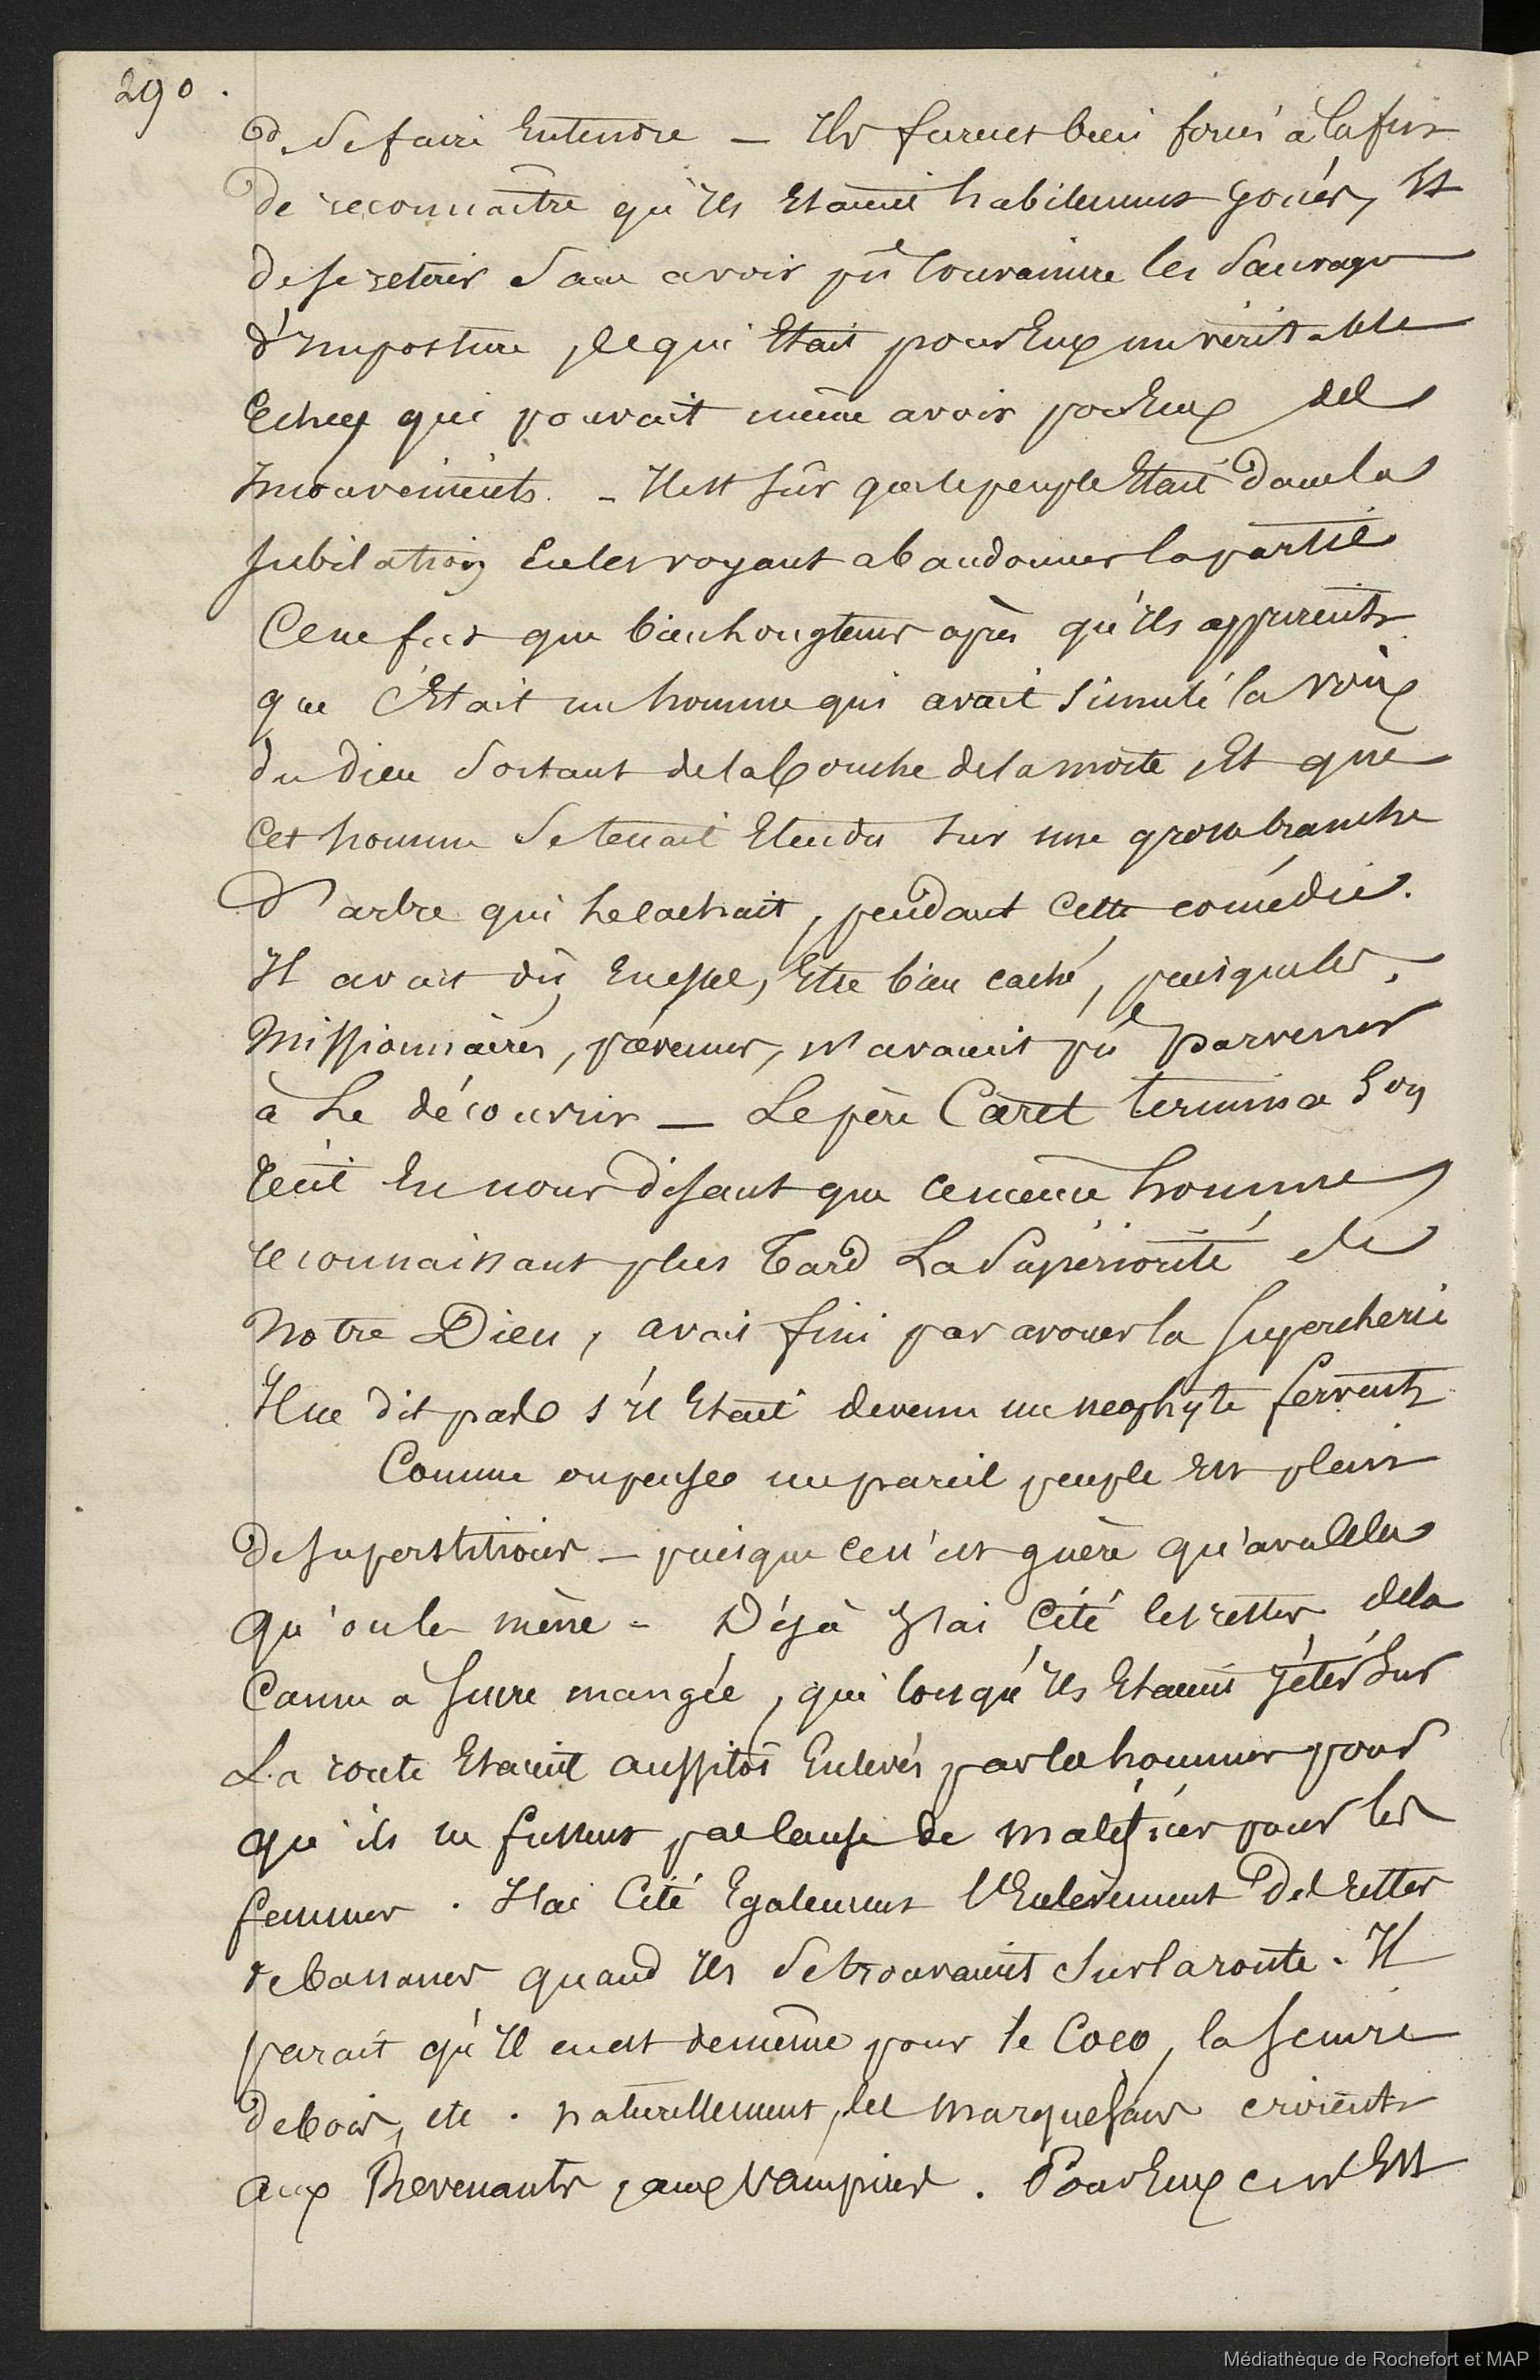 290.
de se faire Entendre — Ils furent bien forcés à la fin
de reconnaître qu'Ils Etaient habilement Joués, Et
de se retirer Sans avoir pû Convaincre les Sauvages
d'Imposture, ce qui Etait pour Eux un véritable
Echec qui pouvait même avoir pour Eux des
Inconvénients. — Il est sûr que le peuple Etait dans la
Jubilation En les voyant abandonner la partie
Ce ne fut que bien longtems après qu'Ils apprirent
que C'Etait un homme qui avait simulé la voix
du Dieu Sortant de la bouche de la morte, Et que
Cet homme Se tenait Etendu sur une grosse branche
d'arbre qui le cachait, pendant Cette comédie.
Il avait dû, En effet, Etre bien caché, puisque les
Missionnaires, prévenus, n'avaient pû parvenir
à Le découvrir — Le père Caret termina Son
récit En nous disant que ce même homme
reconnaissant plus Tard La Supériorité de
Notre Dieu, avait fini par avouer la supercherie
Il ne dit pas s'Il Etait devenu un néophyte fervent
Comme on pense un pareil peuple Est plein
de superstitions — puisque ce n'est guère qu'avec elles
qu'on le mène — Déjà J'ai Cité les restes de la
Canne à sucre mangée, qui lorsqu'Ils Etaient Jétés Sur
La route Etaient aussitôt Enlevés par les hommes pour
qu'ils ne fussent pas cause de maléfices pour les
femmes. J'ai Cité Egalement l'Enlèvement des restes
de bananes quand Ils Se trouvaient Sur la route. Il
parait qu'Il en est de même pour le Coco, la sciure
de bois, etc. naturellement, les Marquesans croient
aux Revenants, aux Vampires. Pour Eux ce n'Est
Médiathèque de Rochefort et MAP